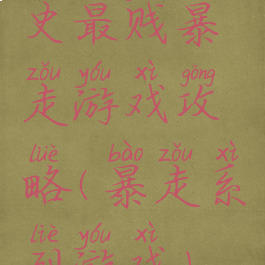 史最贱暴
zǒu yóu xì gōng
走游戏攻
lüè bào zǒu xì
略(暴走系
liè yóu xì
列游戏)